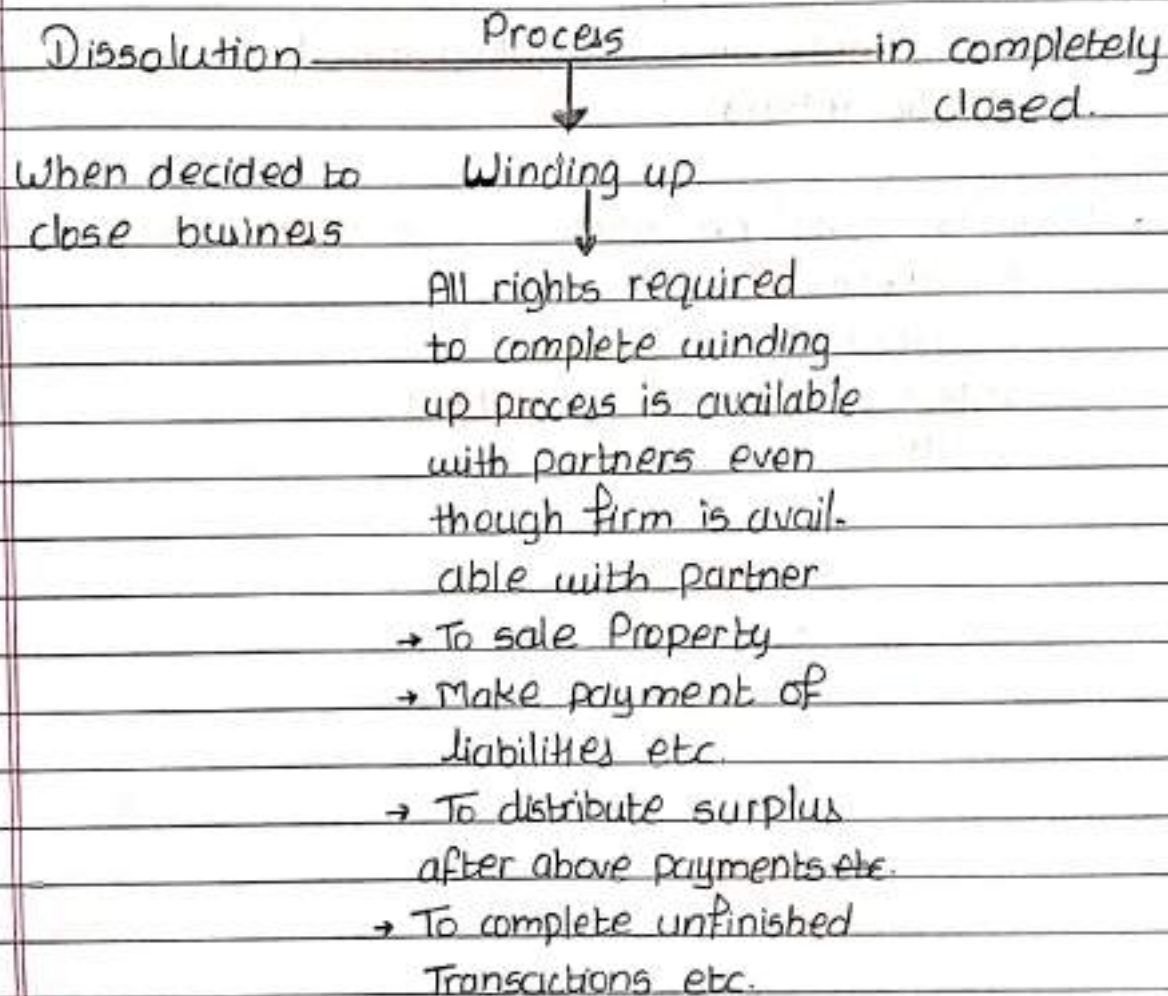 Dissolution Process in completely
closed.
When decided to Winding up
close business
All rights required
to complete winding
up process is available
with partners even
though firm is avail-
able with partner
→ To sale Property
→ Make payment of
liabilities etc.
→ To distribute surplus
after above payments etc.
→ To complete unfinished
Transactions etc.